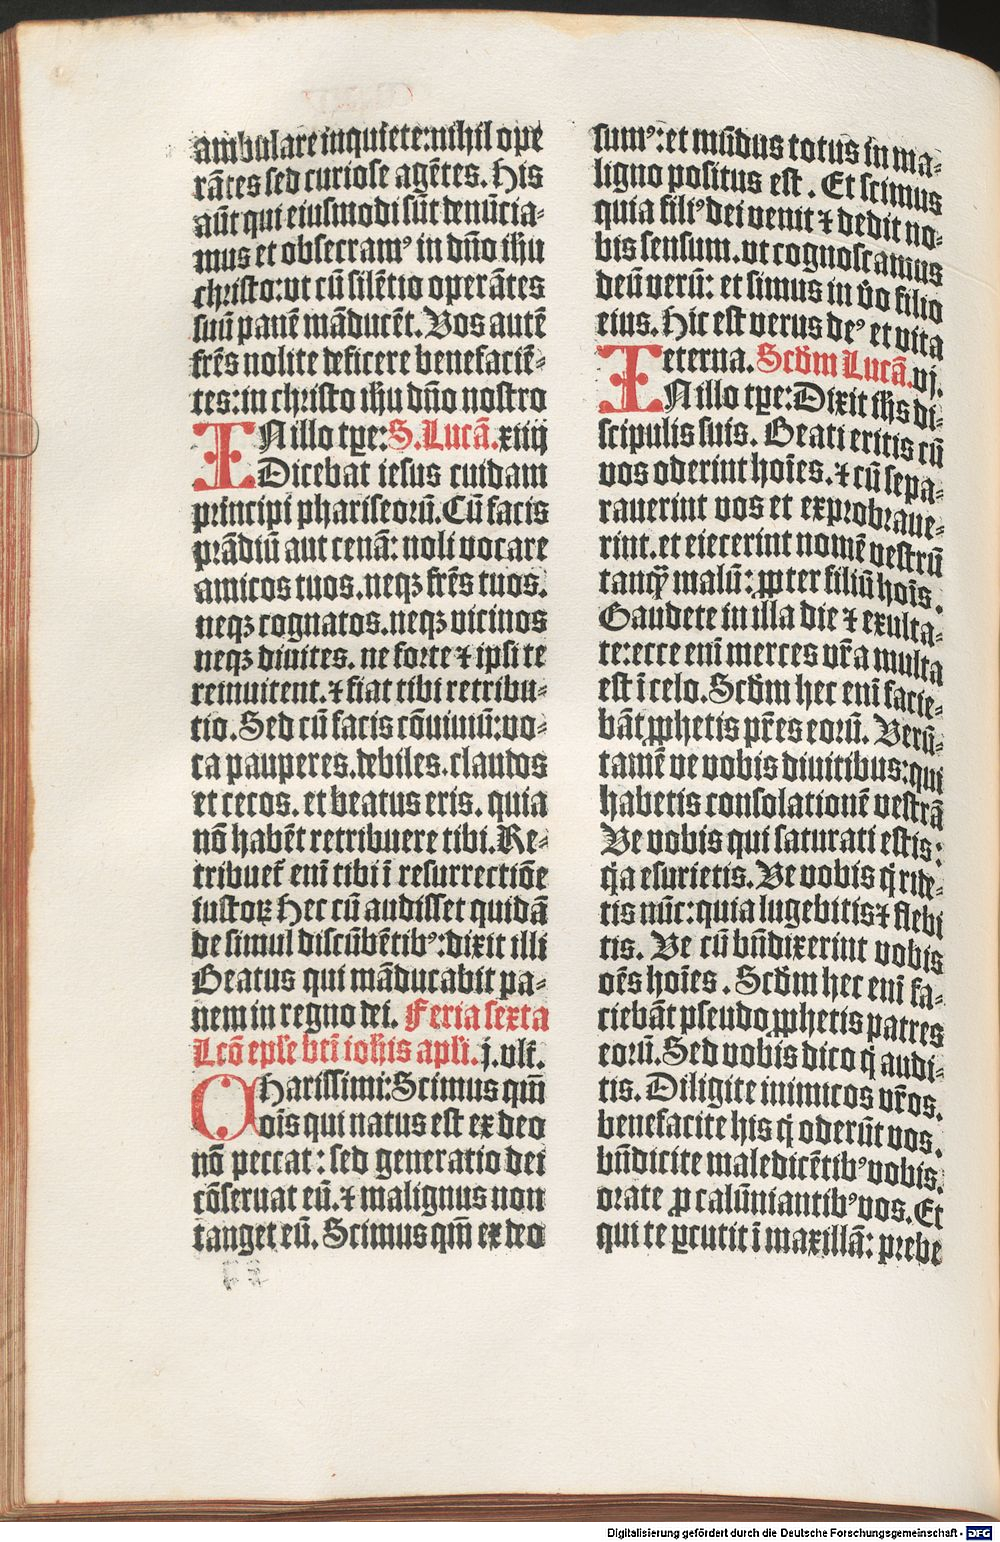 ambulare inquiete: nihil ope
rātes sed curiose agētes. His
aūt qui eiusmodi sūt denūcia⸗
mus et obsecramꝰ in dn̄o ih̄u
christo: vt cū silētio operātes
suū panē māducēt. Vos autē
frēs nolite deficere benefaciē⸗
tes: in christo ih̄u dn̄o nostro
IN illo tꝑe: S. Lucā. xiiij
Dicebat iesus cuidam
principi phariseorū. Cū facis
prādiū aut cenā: noli vocare
amicos tuos. neqꝫ frēs tuos.
neqꝫ cognatos. neqꝫ vicinos
neqꝫ diuites. ne forte ⁊ ipsi te
reinuitent. ⁊ fiat tibi retribu⸗
tio. Sed cū facis cōuiuiū: vo⸗
ca pauperes. debiles. claudos
et cecos. et beatus eris. quia
nō habēt retribuere tibi. Re⸗
tribuet̄ eni̅ tibi ī resurrectiōe
iustoꝝ Hec cū audisset quidā
de simul discūbētibꝰ: dixit illi
Beatus qui māducabit pa⸗
nem in regno dei. Feria sexta
Lcō eple bt̄i ioh̄is apl̄i. j. vlt̄.
CHarissimi: Scimus qm̄
oīs qui natus est ex deo
nō peccat: sed generatio dei
cōseruat eū. ⁊ malignus non
tanget eū. Scimus qm̄ ex deo
sumꝰ: et mūdus totus in ma⸗
ligno positus est. Et scimus
quia filiꝰ dei venit ⁊ dedit no⸗
bis sensum. vt cognoscamus
deū verū: et simus in v̄o filio
eius. Hic est verus deꝰ et vita
eterna. Scd̄m Lucā. vj.
IN illo tꝑe: Dixit ih̄s di⸗
scipulis suis. Beati eritis cū
vos oderint hoīes. ⁊ cū sepa⸗
rauerint vos et exprobraue⸗
rint. et eiecerint nomē vestrū
tanqꝫ malū: ꝓpter filiū hoīs.
Gaudete in illa die ⁊ exulta⸗
te: ecce eni̅ merces vr̄a multa
est ī celo. Scd̄m hec eni̅ facie⸗
bāt ꝓphetis pr̄es eorū. Verū⸗
tamē ve vobis diuitibus: qui
habetis consolationē vestrā
Ve vobis qui saturati estis:
q̄a esurietis. Ve vobis q̄ ride⸗
tis nūc: quia lugebitis ⁊ flebi
tis. Ve cū bn̄dixerint vobis
oēs hoīes. Scd̄m hec eni̅ fa⸗
ciebāt pseudo ꝓphetis patres
eorū. Sed vobis dico q̄ audi⸗
tis. Diligite inimicos vr̄os.
benefacite his q̄ oderūt vos.
bn̄dicite maledicētibꝰ vobis.
orate ꝑ calūniantibꝰ vos. Et
qui te ꝑcutit ī maxillā: prebe
Digitalisierung gefördert durch die Deutsche Forschungsgemeinschaft - DFG